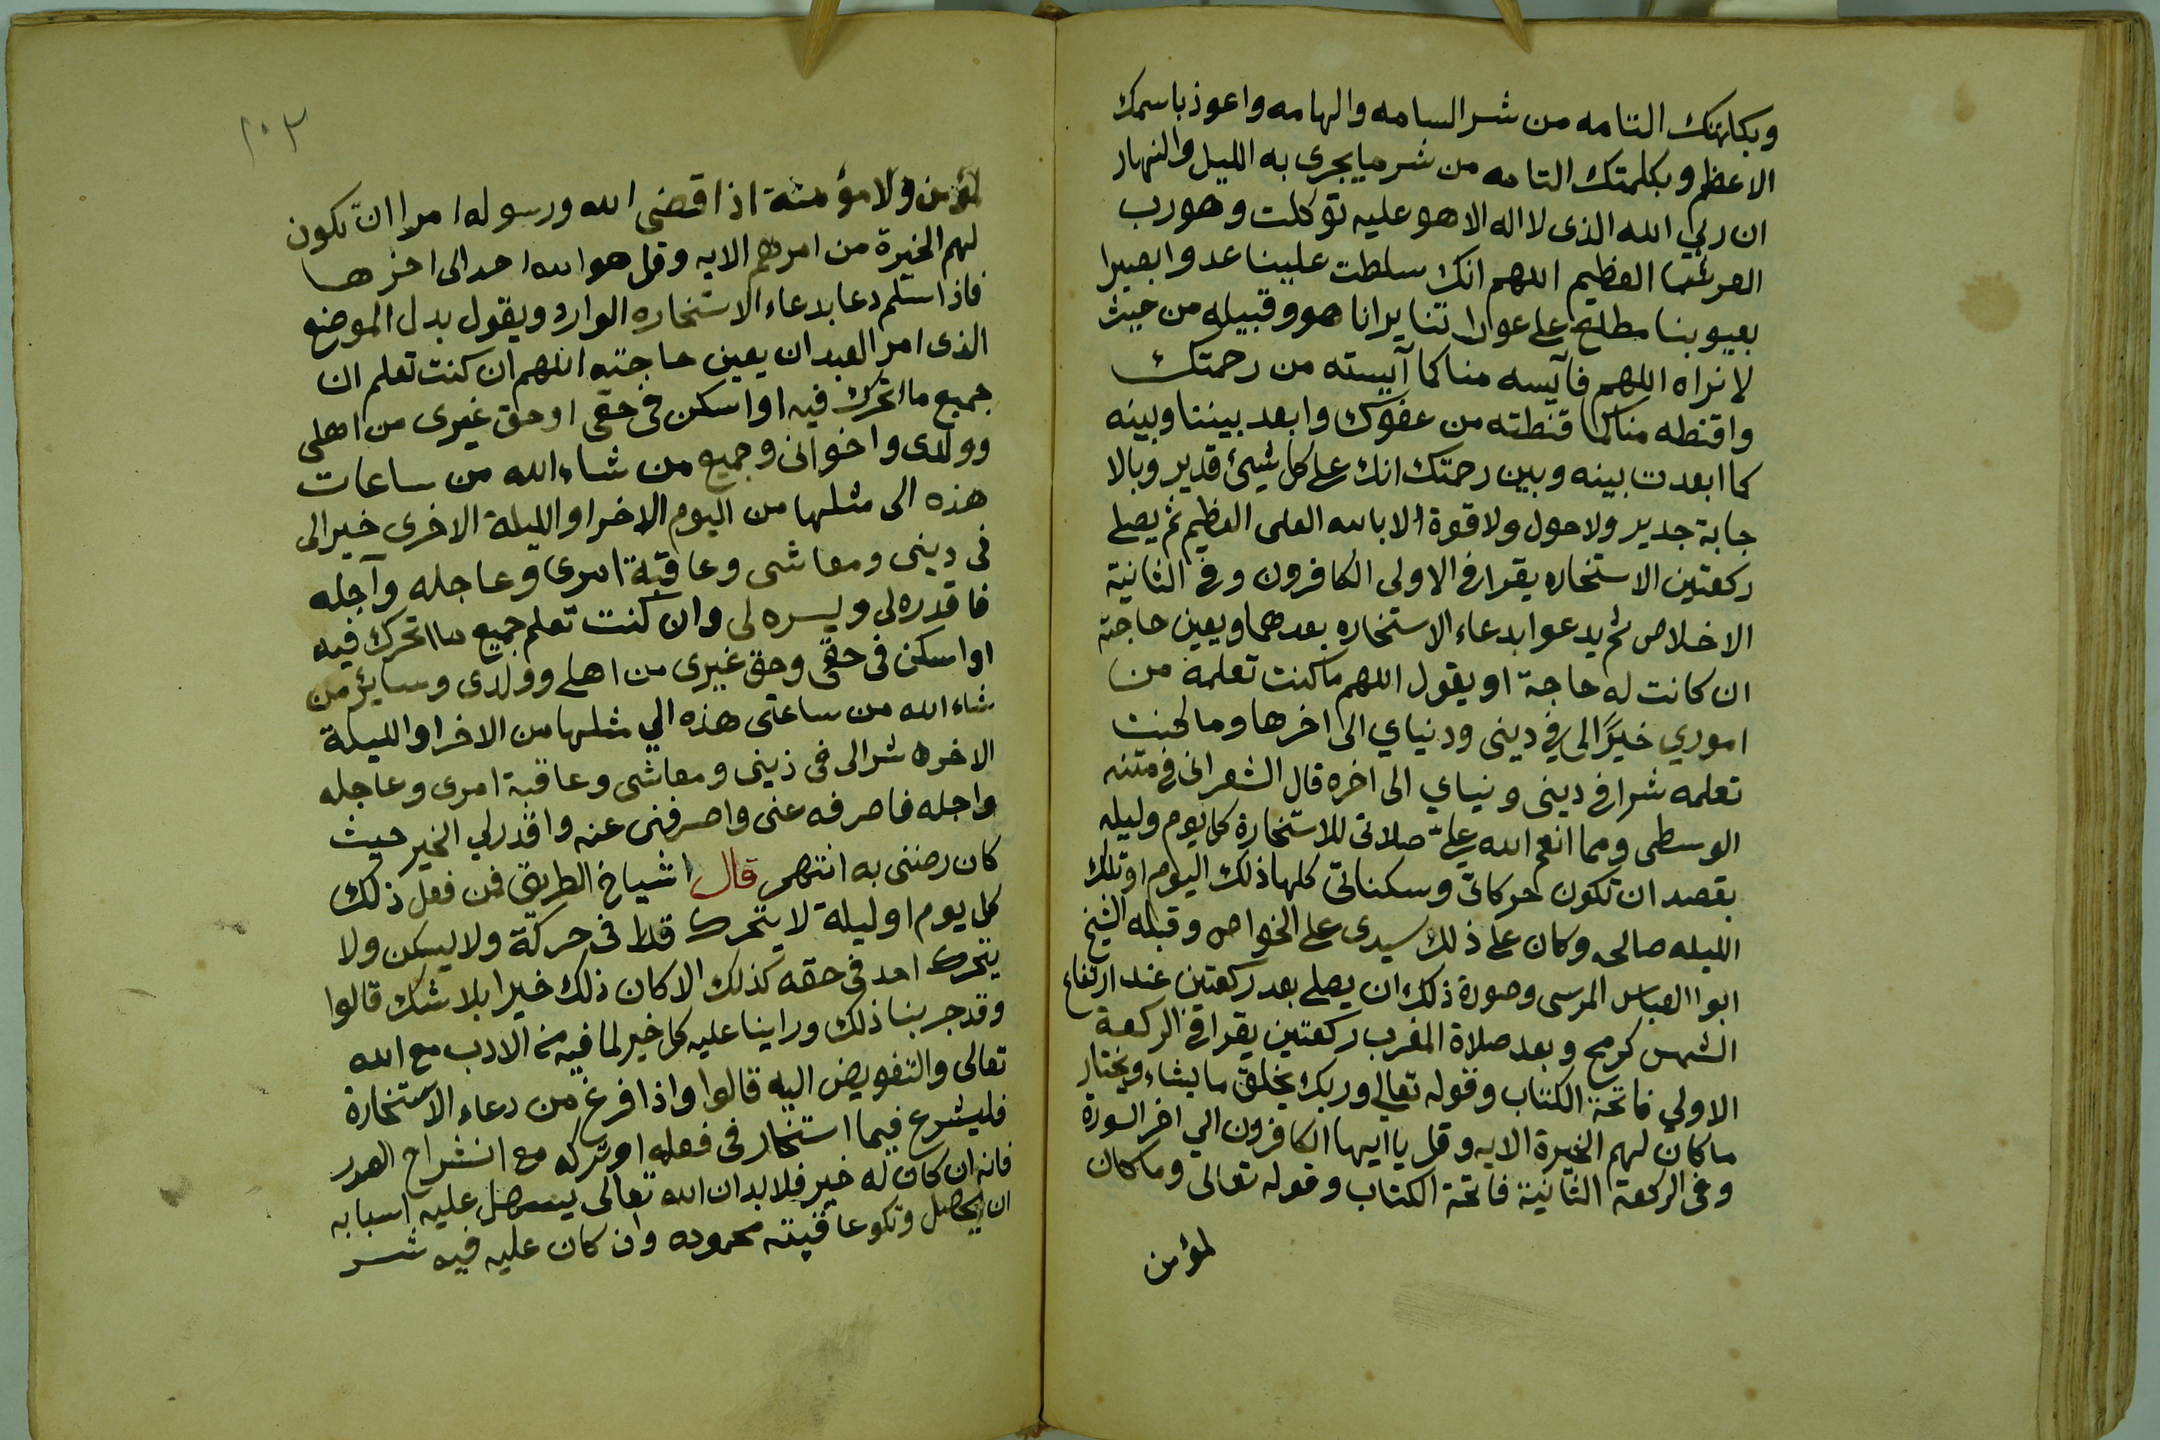 وبكلمتك التامه من شر السامه والهامه واعوذ باسمك
الاعظم وبكلمتك التامه من شر ما يجرى به الليل والنهار
ان ربي الله الذى لا اله الا هو عليه توكلت وهو رب
العرش العظيم اللهم انك سلطت علينا عدوا بصيرا
بعيوبنا مطلع على عوراتنا يرانا هو وقبيله من حيث
لا نراه اللهم فآيسه منا كما آيسته من رحمتك
واقنطه منا كما قنطته من عفوك وابعد بيننا وبينه
كما ابعدت بينه وبين رحمتك انك على كل شيئ قدير وبالا
جابة جدير ولا حول ولا قوة الا بالله العلى العظيم ثم يصلى
ركعتين الاستخاره يقرا في الاولى الكافرون وفي الثانية
الاخلاص ثم يدعوا بدعاء الاستخاره بعدهما ويعين حاجته
ان كانت له حاجة او يقول اللهم ما كنت تعلمه من
اموري خيرًا لى في دينى ودنياي الى اخرها وما كنت
تعلمه شرا في دينى ونياي الى اخره قال الشعرانى في مننه
الوسطى ومما انعم الله على صلاتى للاستخارة كل يوم وليله
بقصد ان تكون حركاتى وسكناتى كلها ذلك اليوم او تلك
الليله صالحه وكان على ذلك سيدى على الخواص وقبله الشيخ
ابوا العباس المرسى وصورة ذلك ان يصلى بعد ركعتين عند ارتفاع
الشمس كرمح وبعد صلاة المغرب ركعتين يقرا في الركعة
الاولي فاتحة الكتاب وقوله تعالي وربك يخلق ما يشاء ويختار
ما كان لهم الخيرة الايه وقل يا ايها الكافرون الي اخر السورة
وفى الركعة الثانية فاتحة الكتاب وقوله تعالى وما كان
لمؤمن
٢٠٣
لمؤمن ولا مؤمنة اذا قضى الله ورسوله امرا ان تكون
لهم الخيرة من امرهم الايه وقل هو الله احد الى اخرها
فاذا سلم دعا بدعاء الاستخاره الوارد ويقول بدل الموضع
الذى امر العبد ان يعين حاجته اللهم ان كنت تعلم ان
جميع ما اتحرك فيه او اسكن فى حقى او حق غيرى من اهلى
وولدى واخوانى وجميع من شاء الله من ساعات
هذه الى مثلها من اليوم الاخر او الليلة الاخرى خير لى
فى دينى ومعاشى وعاقبة امرى وعاجله وآجله
فاقدره لى ويسره لى وان كنت تعلم جميع ما اتحرك فيه
او اسكن فى حقى وحق غيرى من اهلى وولدى وسايئر من
شاء الله من ساعتى هذه الي مثلها من الاخر او الليلة
الاخره شر لى فى ذينى ومعاشى وعاقبة امرى وعاجله
واجله فاصرفه عنى واصرفنى عنه واقدر لي الخير حيث
كان رضنى به انتهى قال اشياخ الطريق فمن فعل ذلك
كل يوم او ليلة لا يتحرك قط فى حركة ولا يسكن ولا
يتحرك احد فى حقه كذلك الا كان ذلك خيرا بلا شك قالوا
وقد جربنا ذلك وراينا عليه كل خير لما فيه من الادب مع الله
تعالى والتفويض اليه قالوا واذا فرغ من دعاء الاستخارة
فليشرع فيما استخار فى فعله او تركه مع انشراح الصدر
فانه ان كان له خير فلا بد ان الله تعالى يسهل عليه اسبابه
ان يحصل وتكو عاقبته محموده وان كان عليه فيه شر